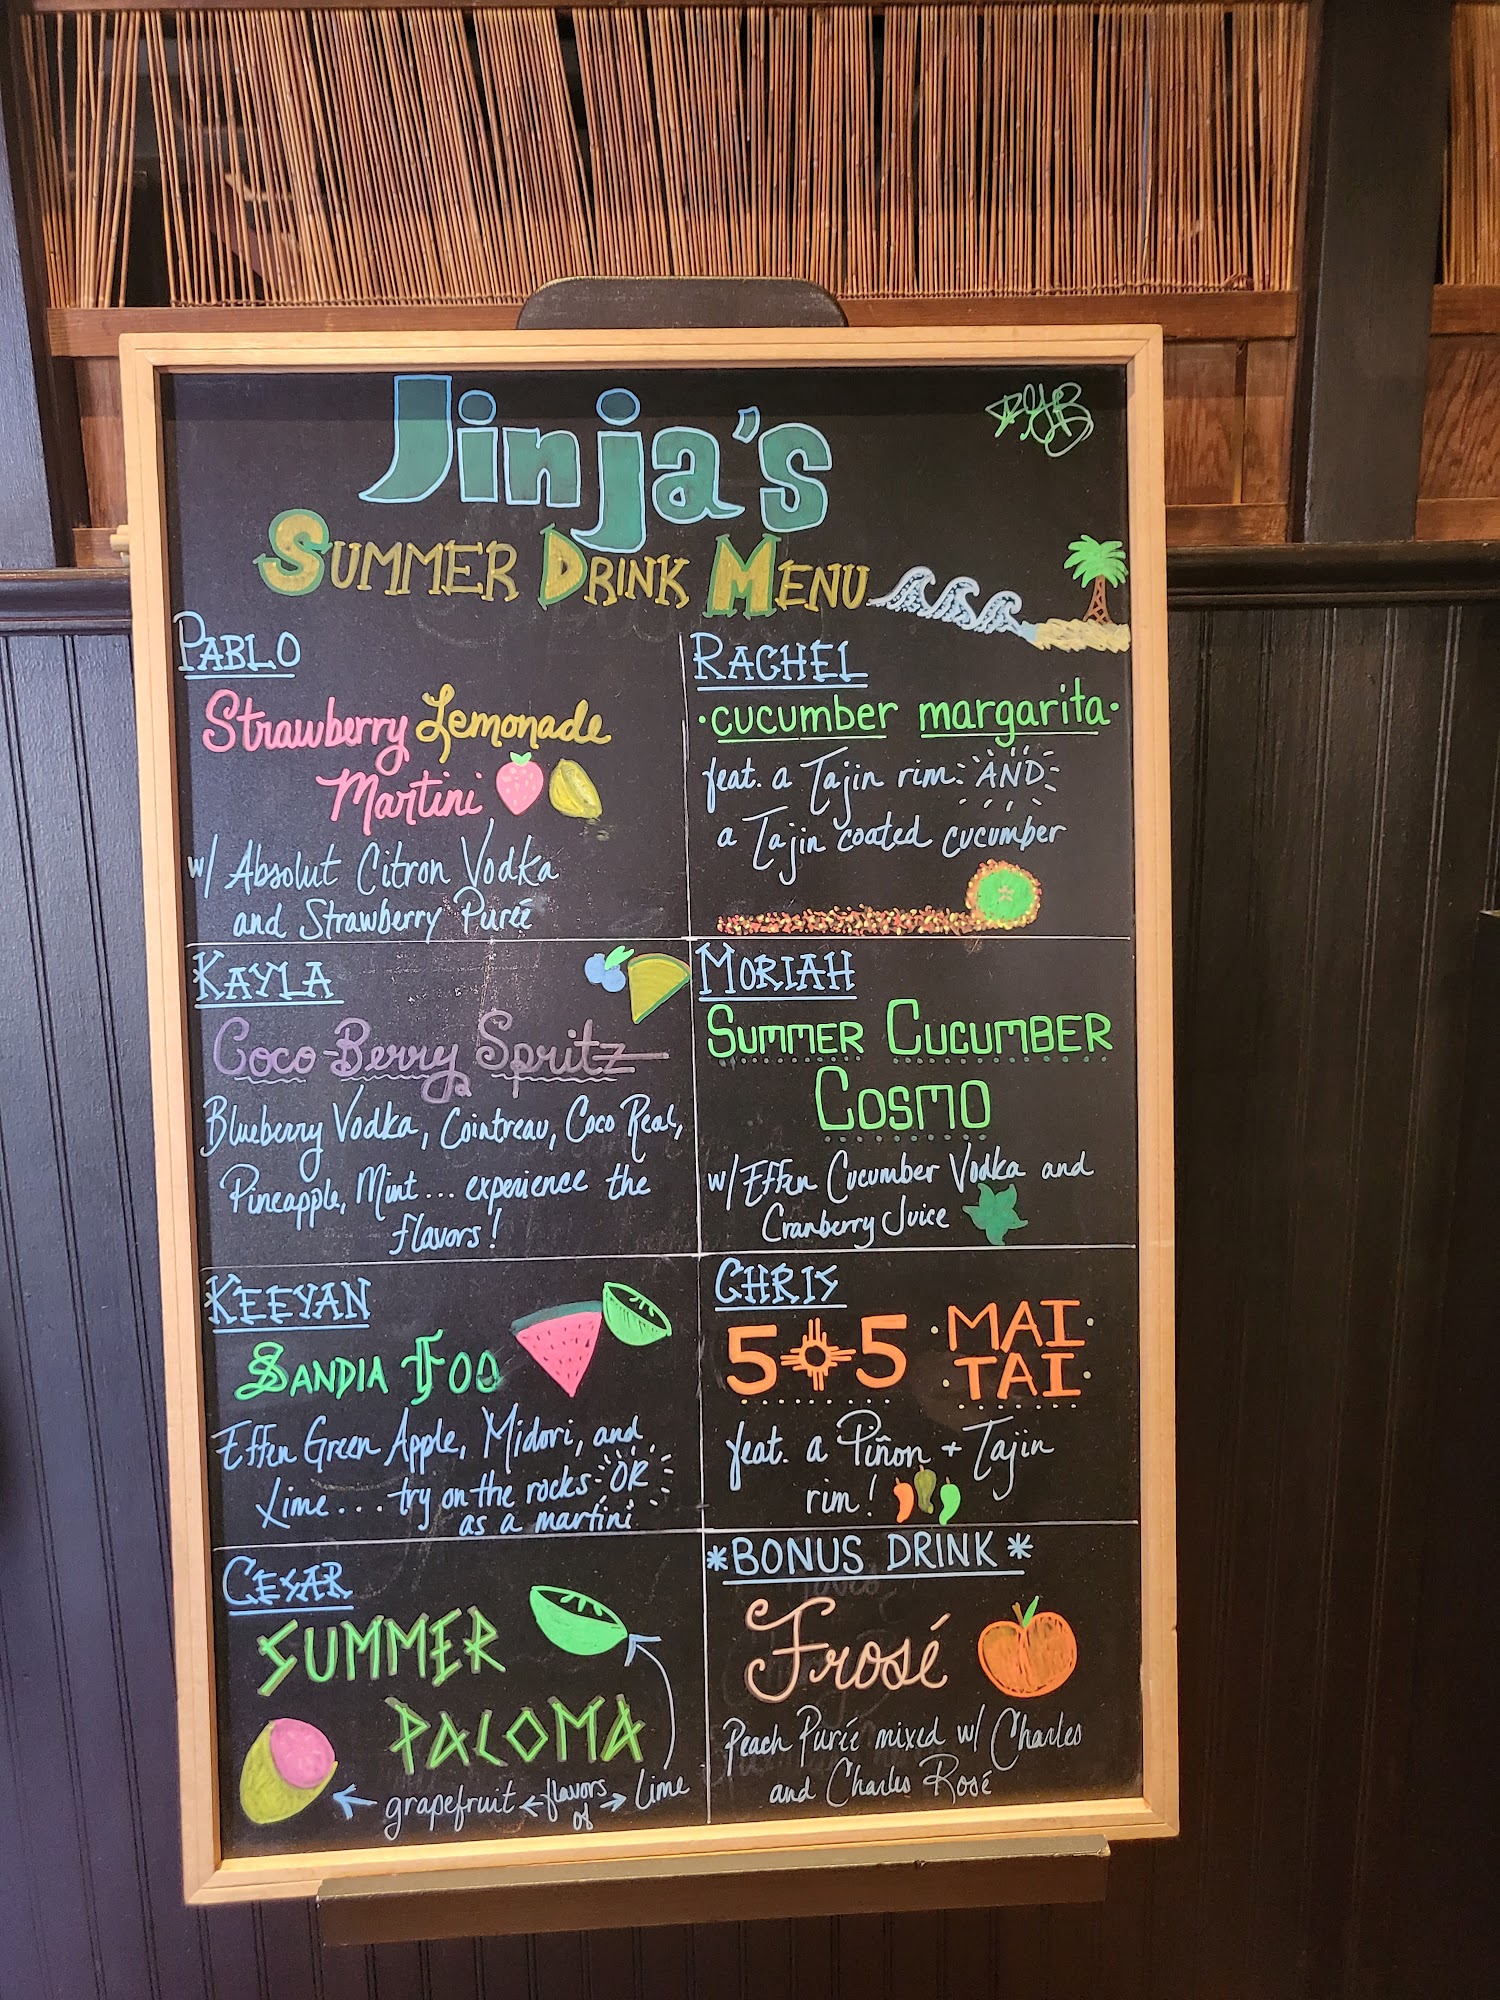 Jinja's
SUMMER DRINK MENU
PABLO
Strawberry Lemonade
Martini
w/ Absolut Citron Vodka
and Strawberry Pureé
RACHEL
·cucumber margarita·
feat. a Tajin rim AND
a Tajin coated cucumber
KAYLA
Coco-Berry Spritz
Blueberry Vodka, Cointreau, Coco Real,
Pineapple, Mint... experience the
flavors!
MORIAH
SUMMER CUCUMBER
COSMO
w/ Effen Cucumber Vodka and
Cranberry Juice
KEEYAN
SANDIA FOO
Effen Green Apple, Midori, and
Lime.... try on the rocks OR
as a martini
CHRIS
505 MAI
TAI
feat. a Piñon + Tajin
rim!
CESAR
SUMMER
PALOMA
grapefruit ← flavors → Lime
of
*BONUS DRINK*
Frosé
Peach Pureé mixed w/ Charles
and Charles Rosé